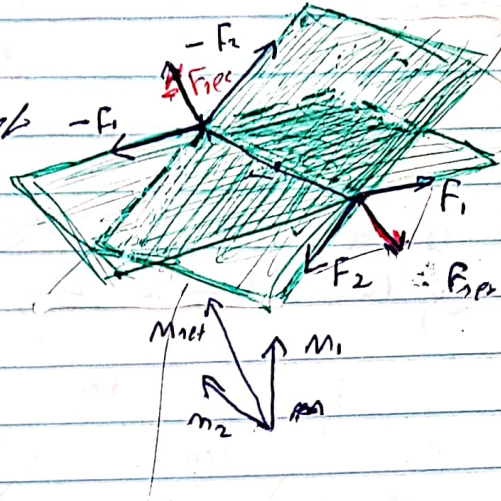 -F₂
Fnet
-F₁
F₁
F₂
∴ Fnet
Mnet
M₁
M₂